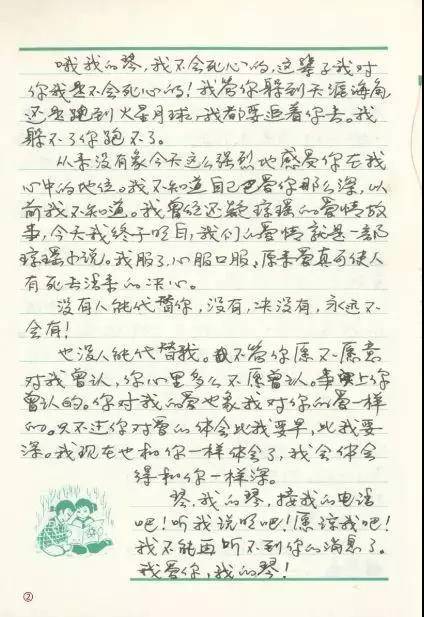 哦我的琴,我不会死心的,这辈子我对
你我是不会死心的!我管你躲到天涯海角,
还是跑到火星月球,我都要追着你去。我
躲不了你跑不了。
从来没有象今天这么强烈地感受你在我
心中的地位。我不知道自己爱你那么深,以
前我不知道。我曾经还疑琼瑶的爱情故
事,今天我终于明白,我们的爱情就是一部
琼瑶小说。我服了,心服口服,原来爱真可使人
有死去活来的决心。
没有人能代替你,没有,决没有,永远不
会有!
也没人能代替我。不管你愿不愿意
对我曾认,你心里多么不愿曾认。事实上你
曾认的。你对我的爱也象我对你的爱一样
的。只不过你对爱的体会比我要早,比我要
深。我现在也和你一样体会了,我会体会
得和你一样深。
琴,我的琴,接我的电话
吧!听我说明吧!原谅我吧!
我不能再听不到你的消息了。
我爱你,我的琴!
②